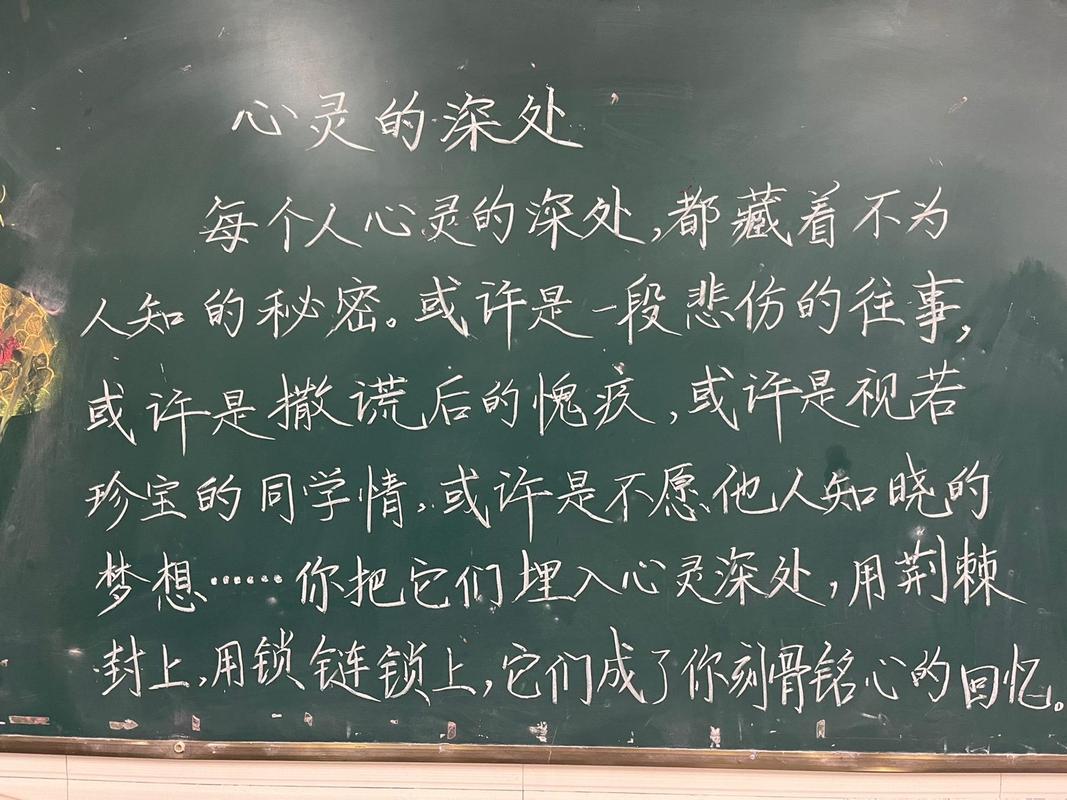 心灵的深处
每个人心灵的深处,都藏着不为
人知的秘密。或许是一段悲伤的往事,
或许是撒谎后的愧疚,或许是视若
珍宝的同学情,或许是不愿他人知晓的
梦想……你把它们埋入心灵深处,用荆棘
封上,用锁链锁上,它们成了你刻骨铭心的回忆。